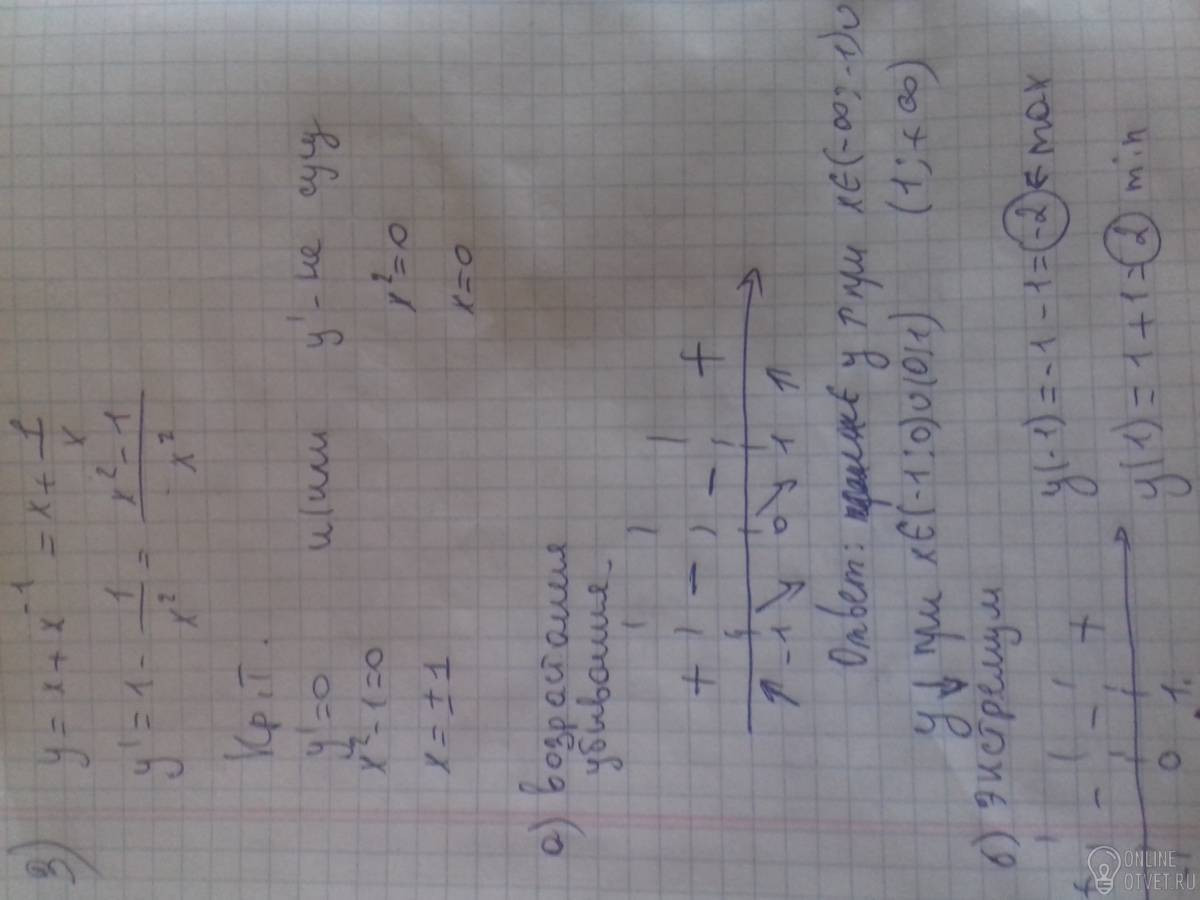 3) y = x + x⁻¹ = x + 1/x
y' = 1 - 1/x² = (x² - 1)/x²
Кр.т.
y' = 0 и/или y' - не сущ
x² - 1 = 0 x² = 0
x = ±1 x = 0
а) возрастания
убывания
+ - - +
↑ -1 ↘ 0 ↘ 1 ↑
Ответ: y ↑ при x∈(-∞; -1)∪
(1; +∞)
y ↓ при x∈(-1; 0)∪(0; 1)
б) экстремум
+ - - +
-1 0 1
y(-1) = -1 - 1 = -2 ← max
y(1) = 1 + 1 = 2 min
ONLINE
OTVET.RU